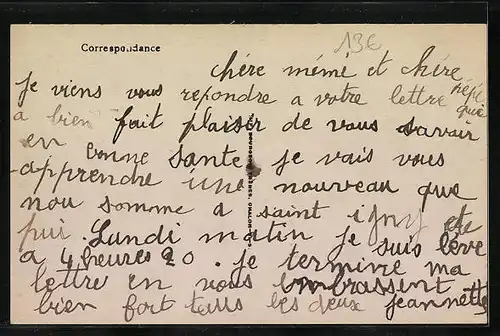 13€
Correspondance
chére mémé et chére pépé
je viens vous repondre a votre lettre qui
a bien fait plaisir de vous savoir
en bonne sante je vais vous
apprendre une nouveau que
nou somme a saint igny ete
pui. Lundi matin je suis lêve
a 4 heures 20. je terminre ma
lettre en vous embrassent
bien fort tous les deux jeannette